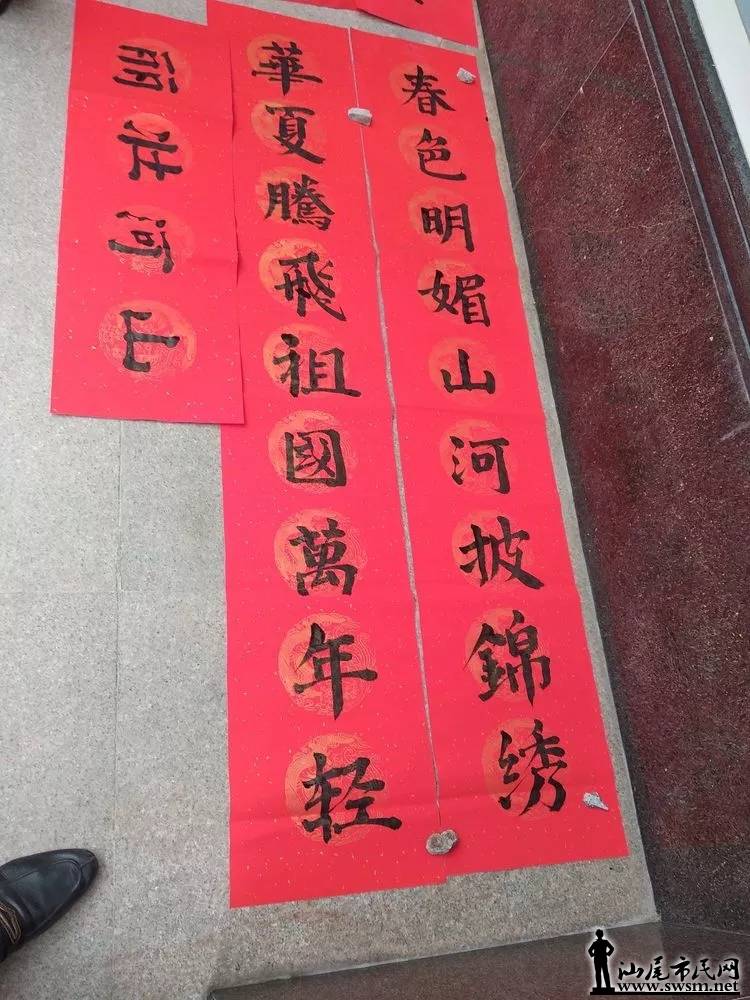 春色明媚山河披錦绣
華夏騰飛祖國萬年轻
山河壮丽
汕尾市民网
www.swsm.net